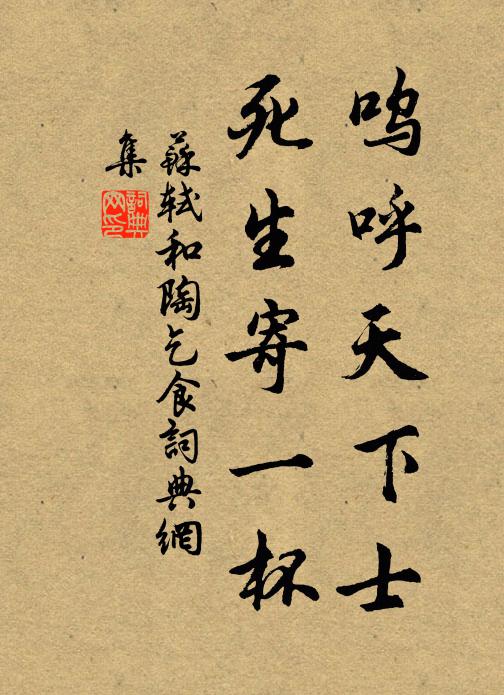 嗚呼天下士
死生寄一杯
蘇軾和陶乞食詞典網
集
詞典
网印